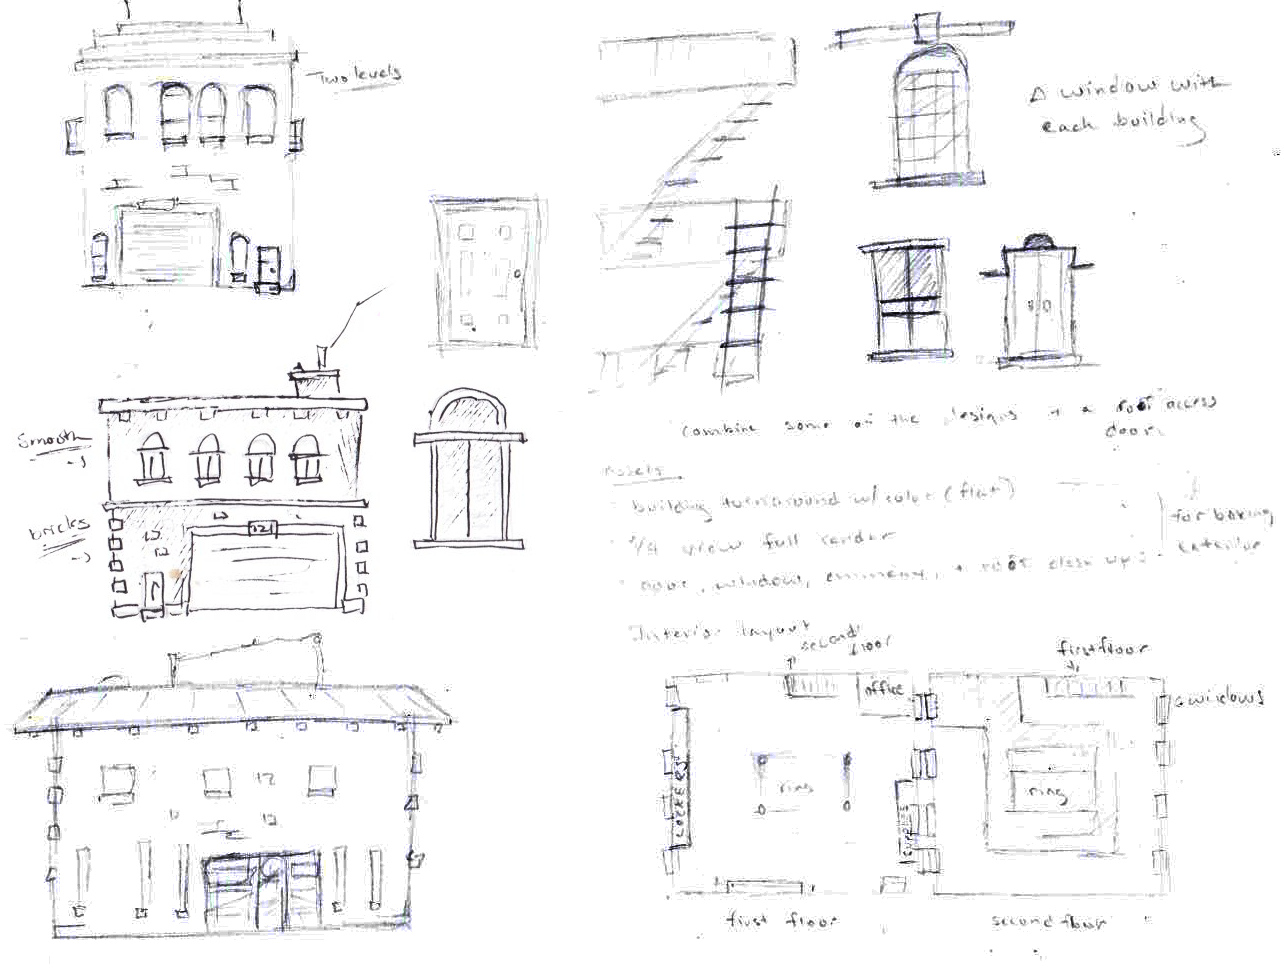 Two levels
A window with
each building
Smooth
bricks
121
combine some of the designs + a roof access
door
Assets
building turnaround w/ color (flat)
3/4 view full render
door, window, chimney, + roof close up
for boxing
exterior
Interior layout
second
floor
first floor
office
windows
LOCKERS
ring
ring
first floor
second floor